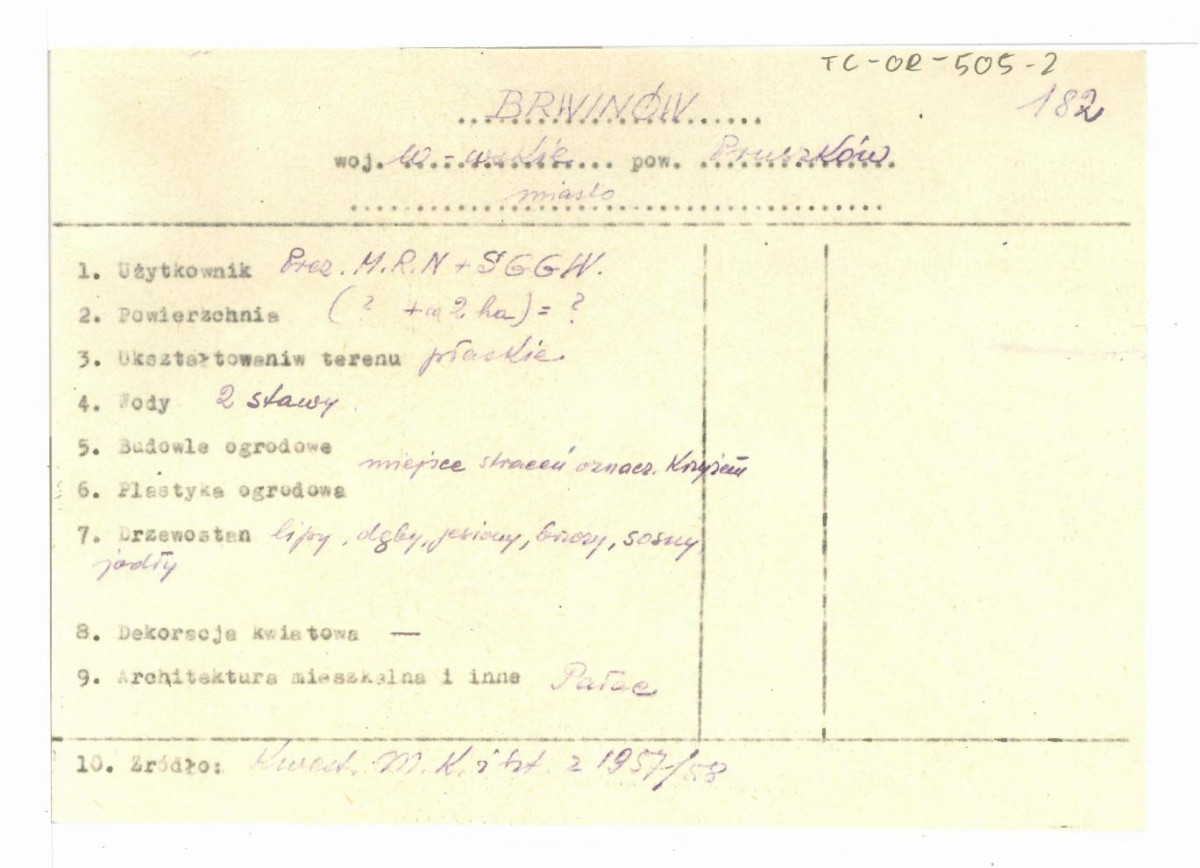 TC-OR-505-2
BRWINÓW 182
woj. w-wskie pow. Pruszków
miasto
1. Użytkownik Prez. M.R.N + SGGW.
2. Powierzchnia (? + ca 2 ha) = ?
3. Ukształtowaniw terenu płaskie
4. Wody 2 stawy
5. Budowle ogrodowe
miejsce straceń oznacz. Krzyżem
6. Plastyka ogrodowa
7. Drzewostan lipy, dęby, jesiony, brzozy, sosny,
jodły
8. Dekoracja kwiatowa —
9. Architektura mieszkalna i inne Pałac
10. Zródło: Kwest. M. K. i Szt. z 1957/58